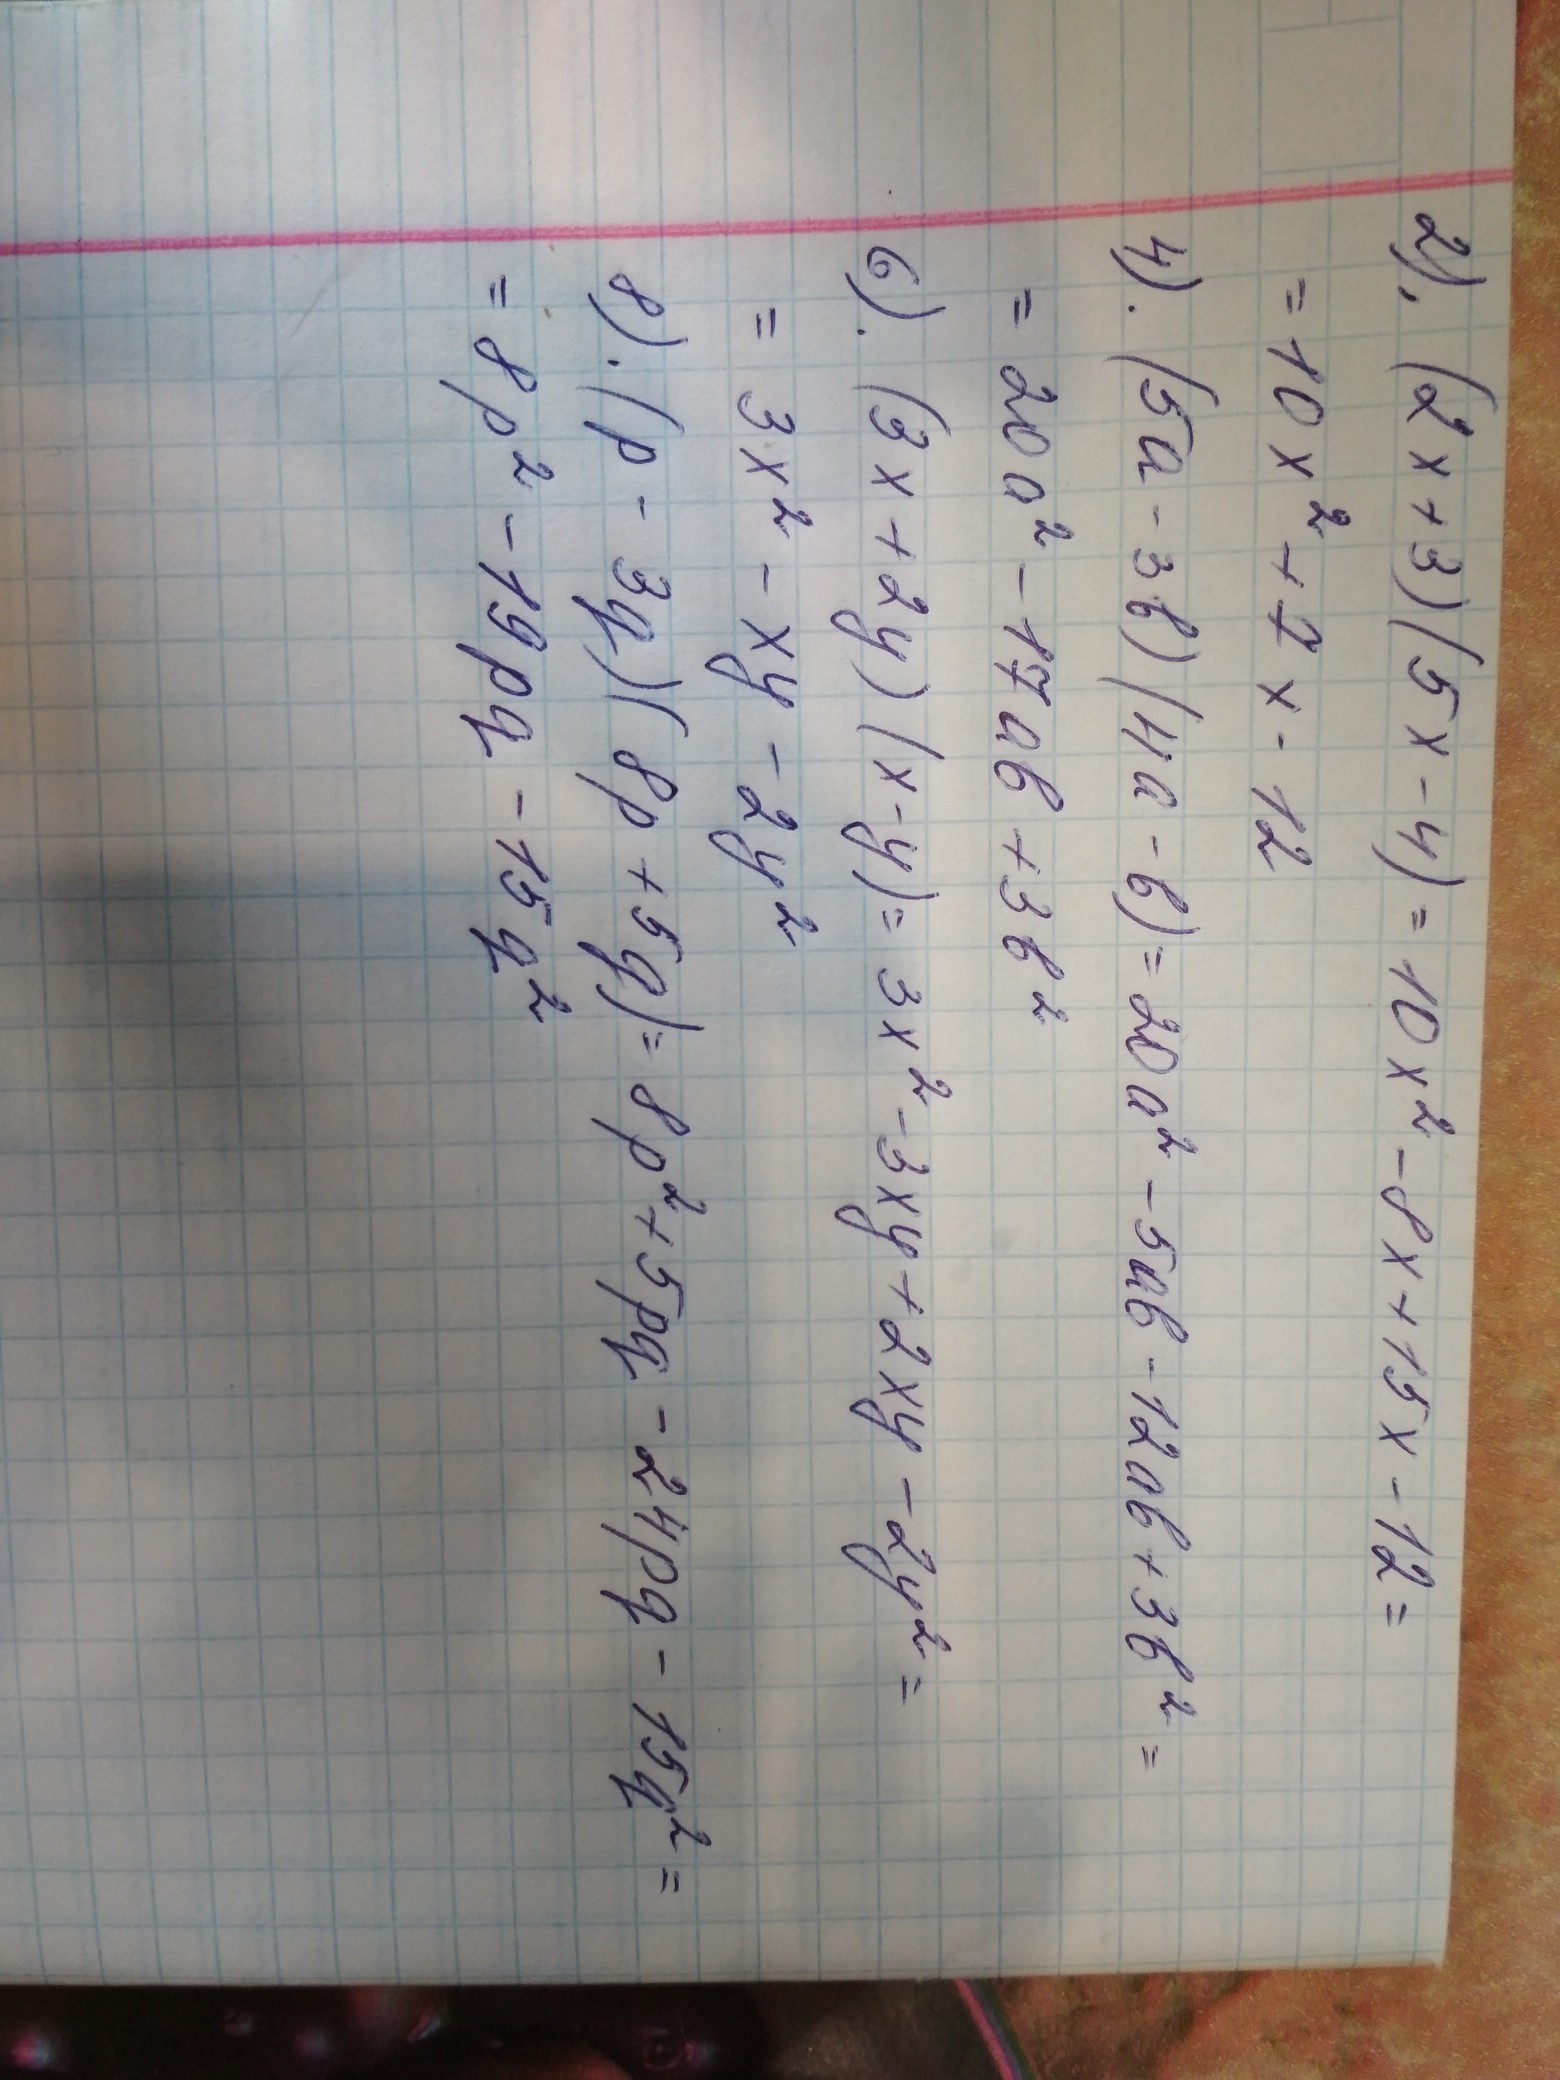 2). (2x+3)(5x-4)=10x²-8x+15x-12=
=10x²+7x-12
4). (5a-3b)(4a-b)=20a²-5ab-12ab+3b²=
=20a²-17ab+3b²
6). (3x+2y)(x-y)=3x²-3xy+2xy-2y²=
=3x²-xy-2y²
8). (p-3q)(8p+5q)=8p²+5pq-24pq-15q²=
=8p²-19pq-15q²